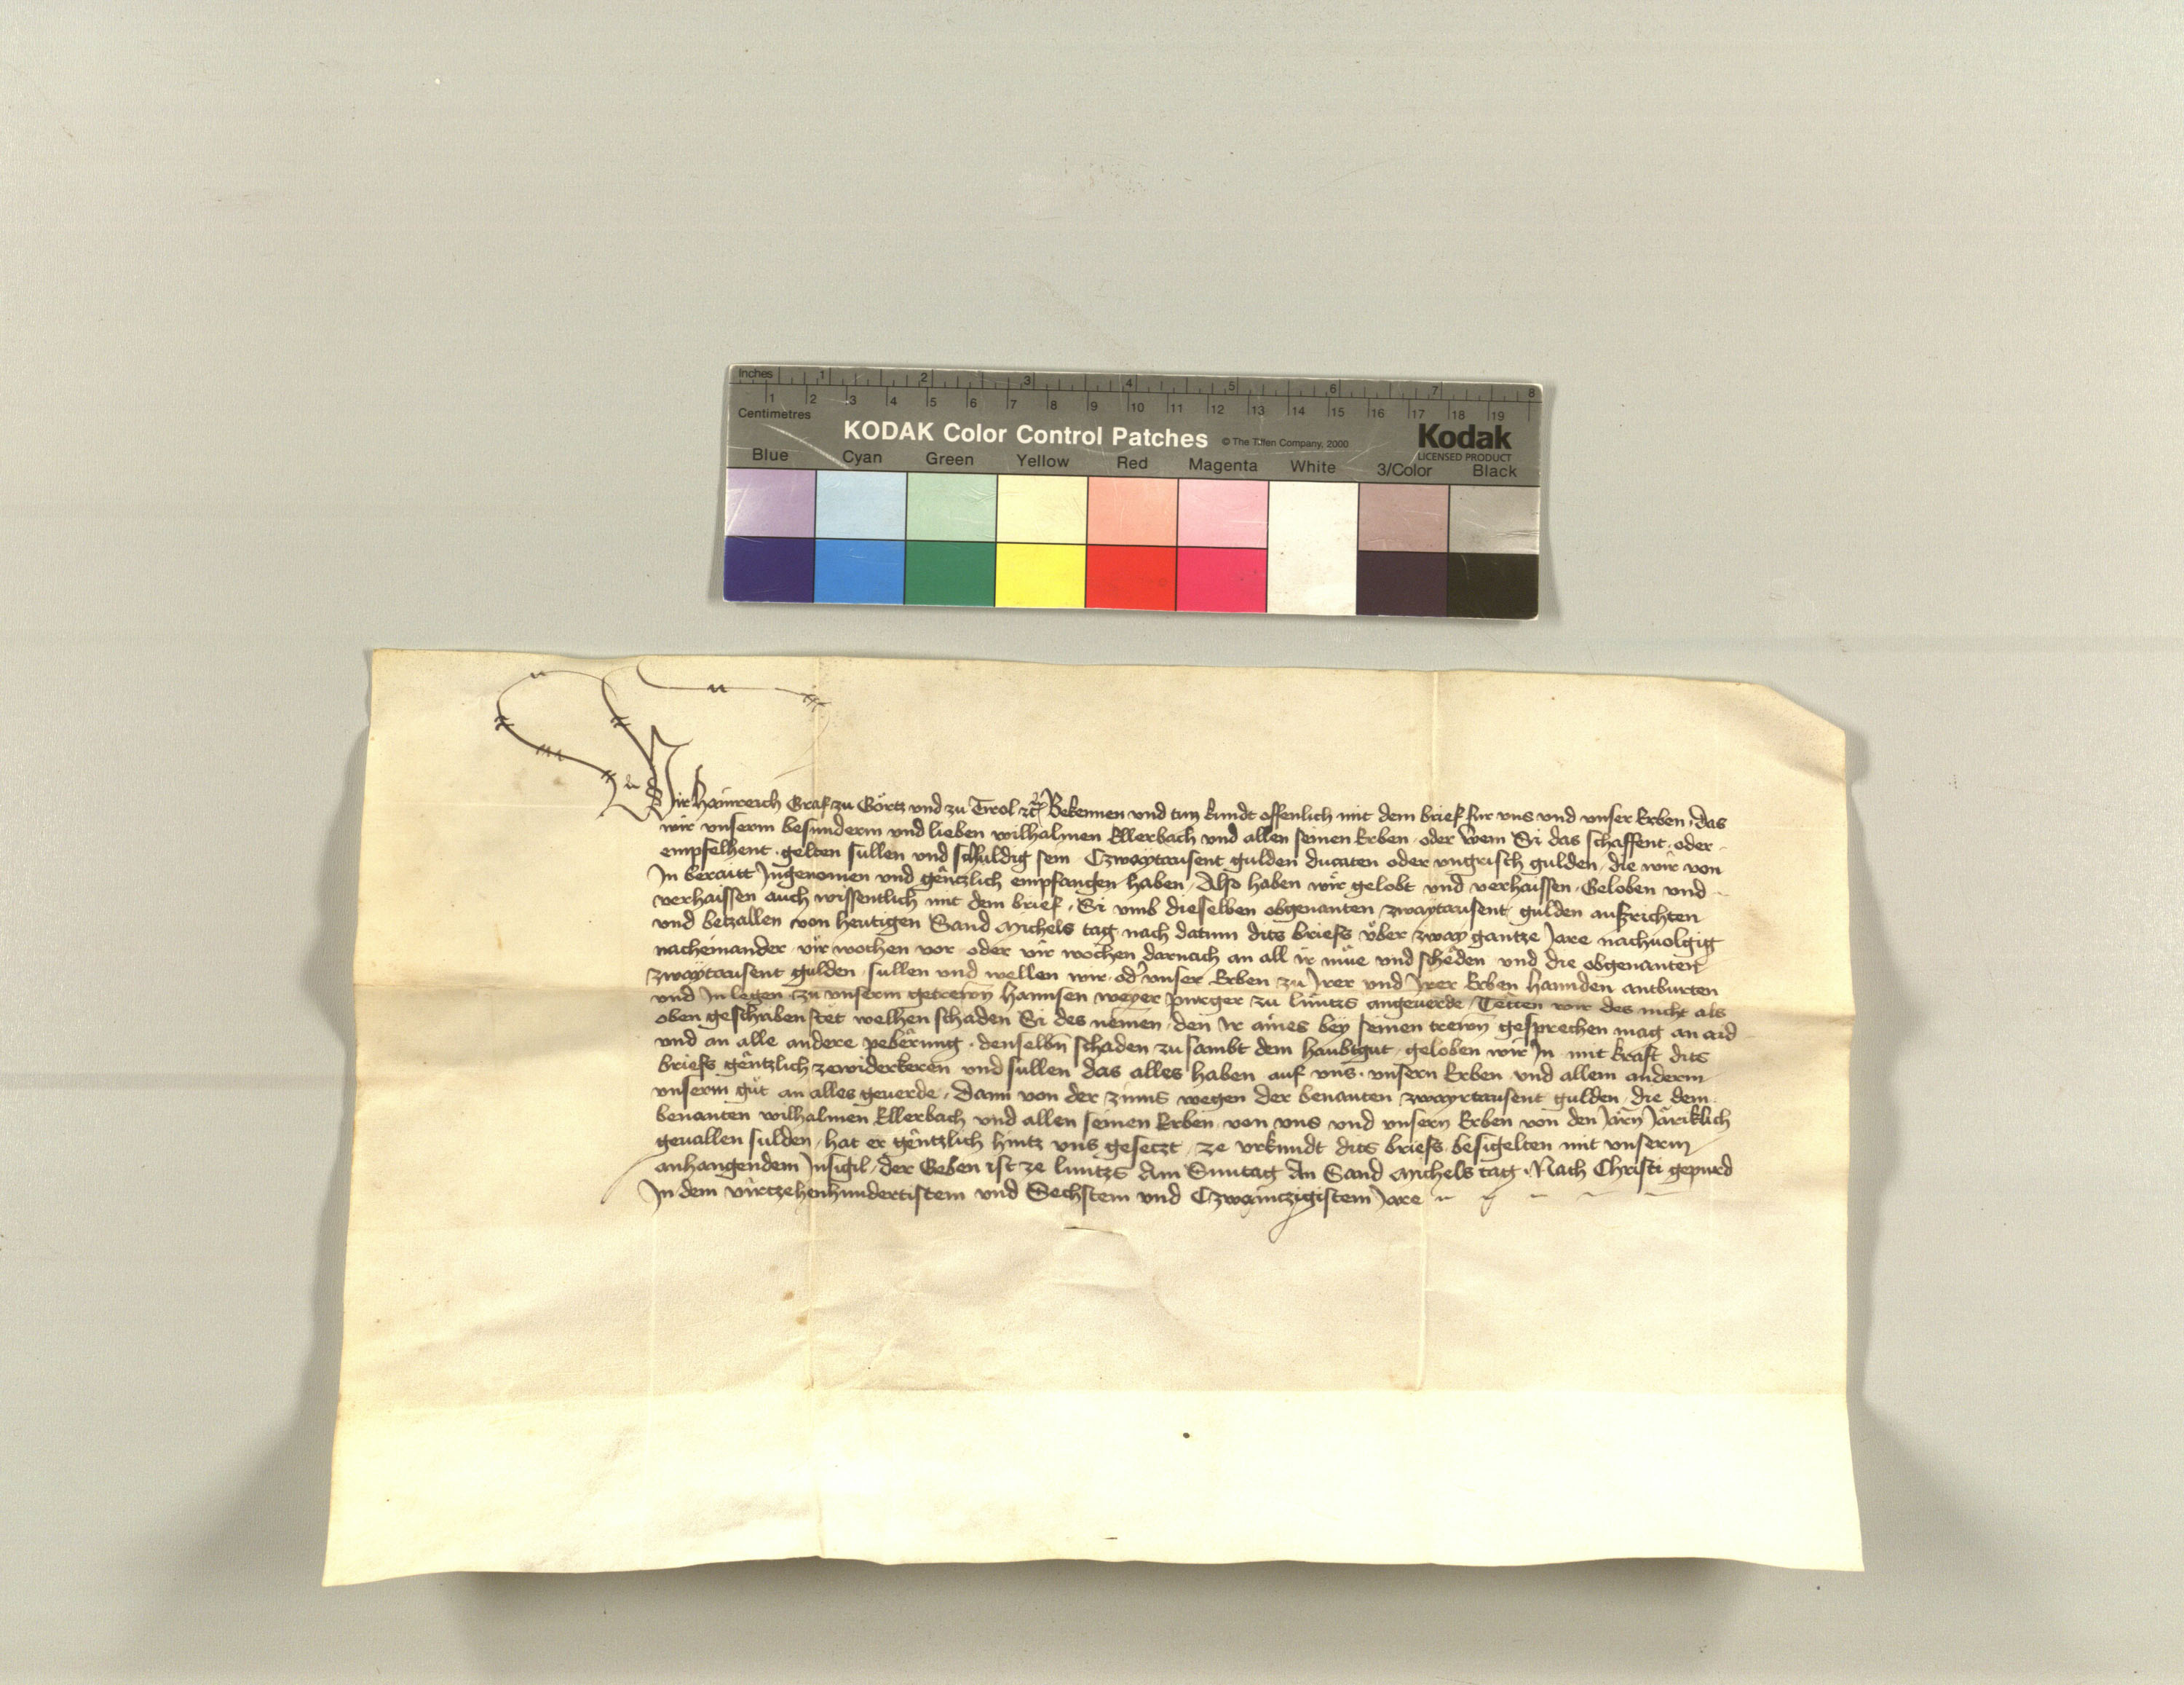 Inches 1 2 3 4 5 6 7 8
1 2 3 4 5 6 7 8 9 10 11 12 13 14 15 16 17 18 19
Centimetres
KODAK Color Control Patches © The Tiffen Company, 2000 Kodak
LICENSED PRODUCT
Blue Cyan Green Yellow Red Magenta White 3/Color Black
Wir Hainreich Graf zu Görtz und zu Tirol etc Bekennen und tun kundt offenlich mit dem brief für uns und unser Erben, das
wir unserm besunderm und lieben wilhalmen Ellerbach und allen seinen Erben oder wem Si das schaffent oder
empfelhent gelten sullen und schuldig sein Czwaytausent gulden ducaten oder ungrisch gulden die wir von
In beraitt Ingenomen und gentzlich empfangen haben, Also haben wir gelobt und verhaissen Geloben und
verhaissen auch wissentlich mit dem brief, Si umb dieselben obgenanten zwaytausent gulden ausrichten
und betzallen von heutigen Sand Michels tag nach datum dits briefs über zway gantze Jare nachuolgig
nacheinander vir wochen vor oder vir wochen darnach an all ir müe und scheden und die obgenanten
zwaytausent gulden sullen und wellen wir od' unser Erben zu Irer und Irer Erben hannden antburten
und In legen zu unserm getrewn Hannsen weyer purger zu Lüntzs angeuerde, Tetten wir des nicht als
oben geschriben stet welhen schaden Si des nemen, den Ir aines bey seinen trewn gesprechen mag an aid
und an alle andere peberung, denselbn schaden zu sambt dem haubtgut geloben wir In mit kraft dits
briefs gentzlich zewiderkeren und sullen das alles haben auf uns unsern Erben und allem anderm
unserm gut an alles geuerde, Dann von der zinns wegen der benanten zwayrtausent gulden die dem
benanten wilhalmen Ellerbach und allen seinen Erben von uns und unsern Erben von den Jarn Järiklich
geuallen sulden, hat er gentzlich hintz uns gesetzt, ze urkundt dits briefs besigelten mit unserm
anhangendem Insigil, der Geben ist ze Lüntzs Am Sunntag An Sand Michels tag, Nach Christi gepurd
In dem virtzehenhundertistem und Sechstem und Czwaintzigistem Jare